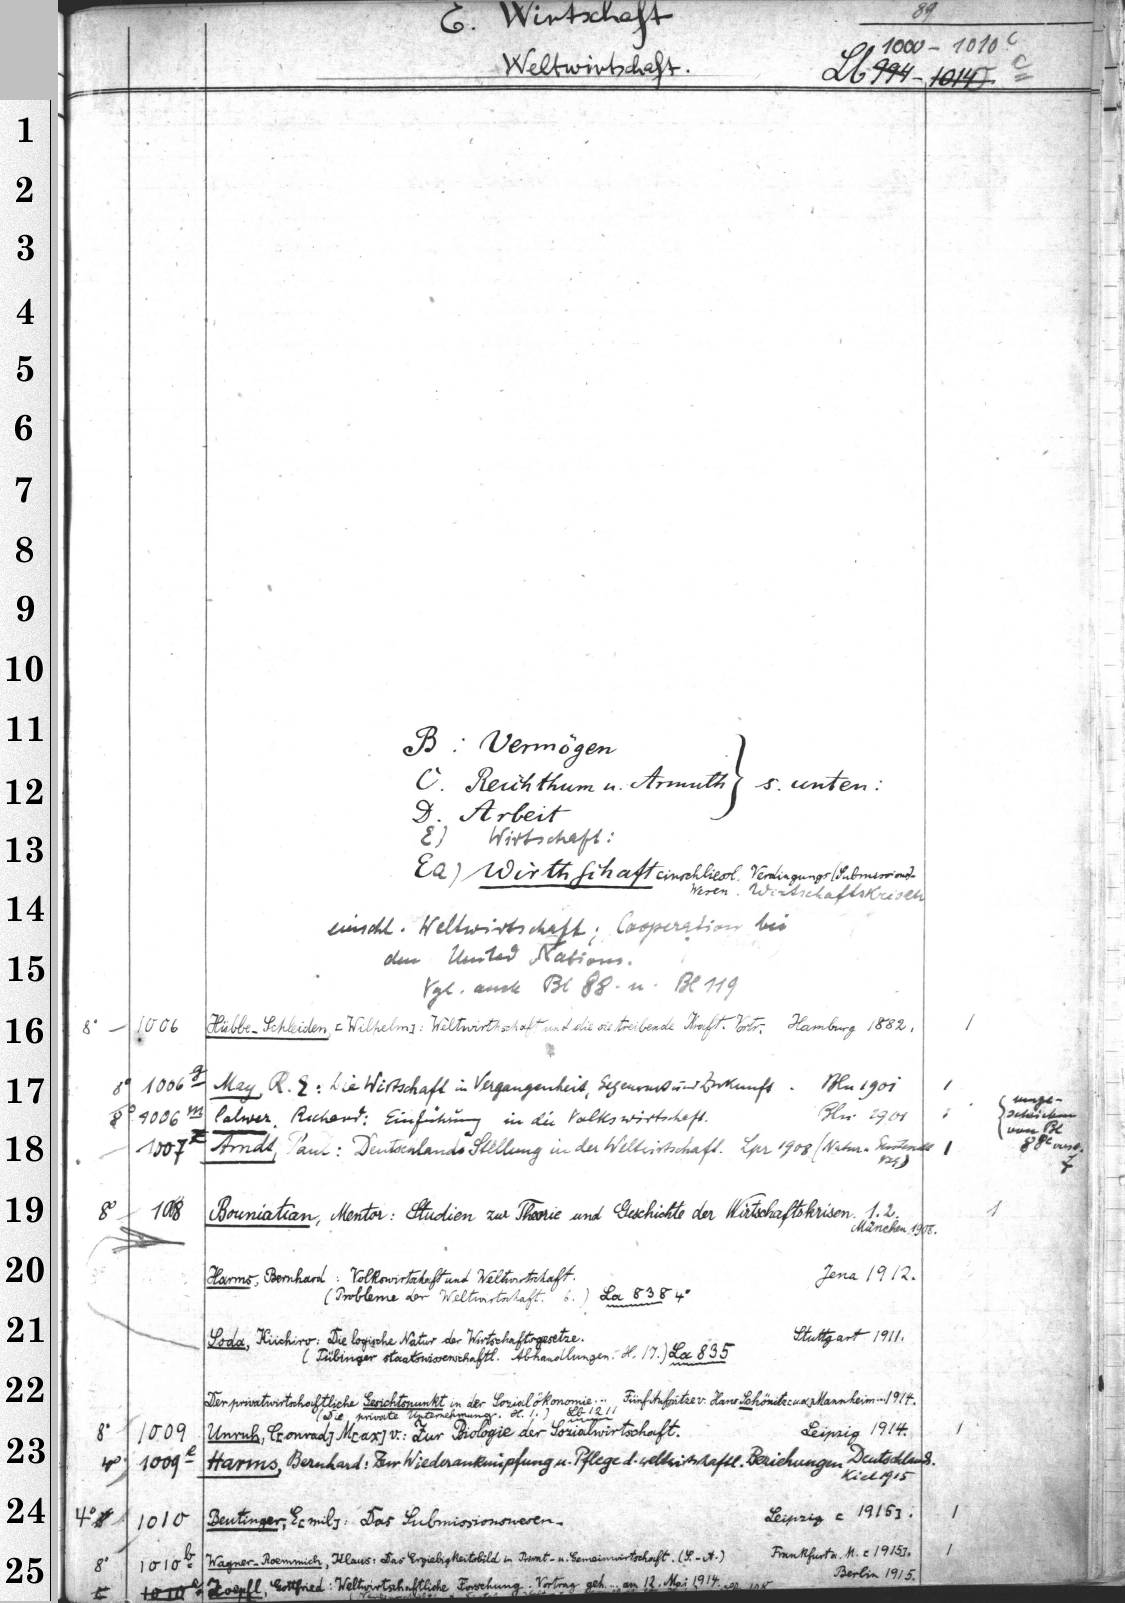 E. Wirtschaft
89
Weltwirtschaft.
1000 - 1010 c
Lb 994 - 1014
1
2
3
4
5
6
7
8
9
10
11
12
13
14
15
16
17
18
19
20
21
22
23
24
25
B : Vermögen
C. Reichthum u. Armuth } s. unten:
D. Arbeit
E) Wirtschaft:
Ea) Wirthschaft einschliessl. Verdingungs (Submissions)-
Wesen. Wirtschaftskrisen
einschl. Weltwirtschaft; Cooperation bei
den United Nations.
Vgl. auch Bl 88 u. Bl 119
8° 1006 Hübbe-Schleiden, [Wilhelm]: Weltwirthschaft und die sie treibende Kraft. Vortr. Hamburg 1882. 1
8° 1006 g May, R. E.: Die Wirtschaft in Vergangenheit, Gegenwart und Zukunft. Bln 1901 1
8° 1006 m Calwer, Richard: Einführung in die Volkswirtschaft. Bln
umge-
schrieben
von Bl
1007 Arndt, Paul: Deutschlands Stellung in der Weltwirtschaft. Lpz 1908 (Natur u. Geisteswelt 1
8° 108 Bouniatian, Mentor: Studien zur Theorie und Geschichte der Wirtschaftskrisen. 1.2. 1
München 1908.
Harms, Bernhard: Volkswirtschaft und Weltwirtschaft. Jena 1912.
(Probleme der Weltwirtschaft. 6.) La 838 4°
Soda, Kiichiro: Die logische Natur der Wirtschaftsgesetze. Stuttgart 1911.
(Tübinger staatswissenschaftl. Abhandlungen. H. 17.) La 835
Der privatwirtschaftliche Gesichtspunkt in der Sozialökonomie... Fünf Aufsätze v. Hans Schönitz Mannheim 1914.
(Die private Unternehmung. H. 1.) Lb 1211
8° 1009 Unruh, C[onrad] M[ax] v.: Zur Biologie der Sozialwirtschaft. Leipzig 1914. 1
1009 e Harms, Bernhard: Zur Wiederanknüpfung u. Pflege d. weltwirtschaftl. Beziehungen Deutschlands.
Kiel 1915
4° 1010 Beutinger, E[mil]: Das Submissionswesen. Leipzig [1915]. 1
8° 1010 b Wagner-Roemmich, Klaus: Das Ergiebigkeitsbild in Privat- u. Gemeinwirtschaft. (S.-A.) Frankfurt a. M. [1915]. 1
Berlin 1915.
1010 c Zoepfl, Gottfried: Weltwirtschaftliche Forschung. Vortrag geh. ... am 12. Mai 1914.